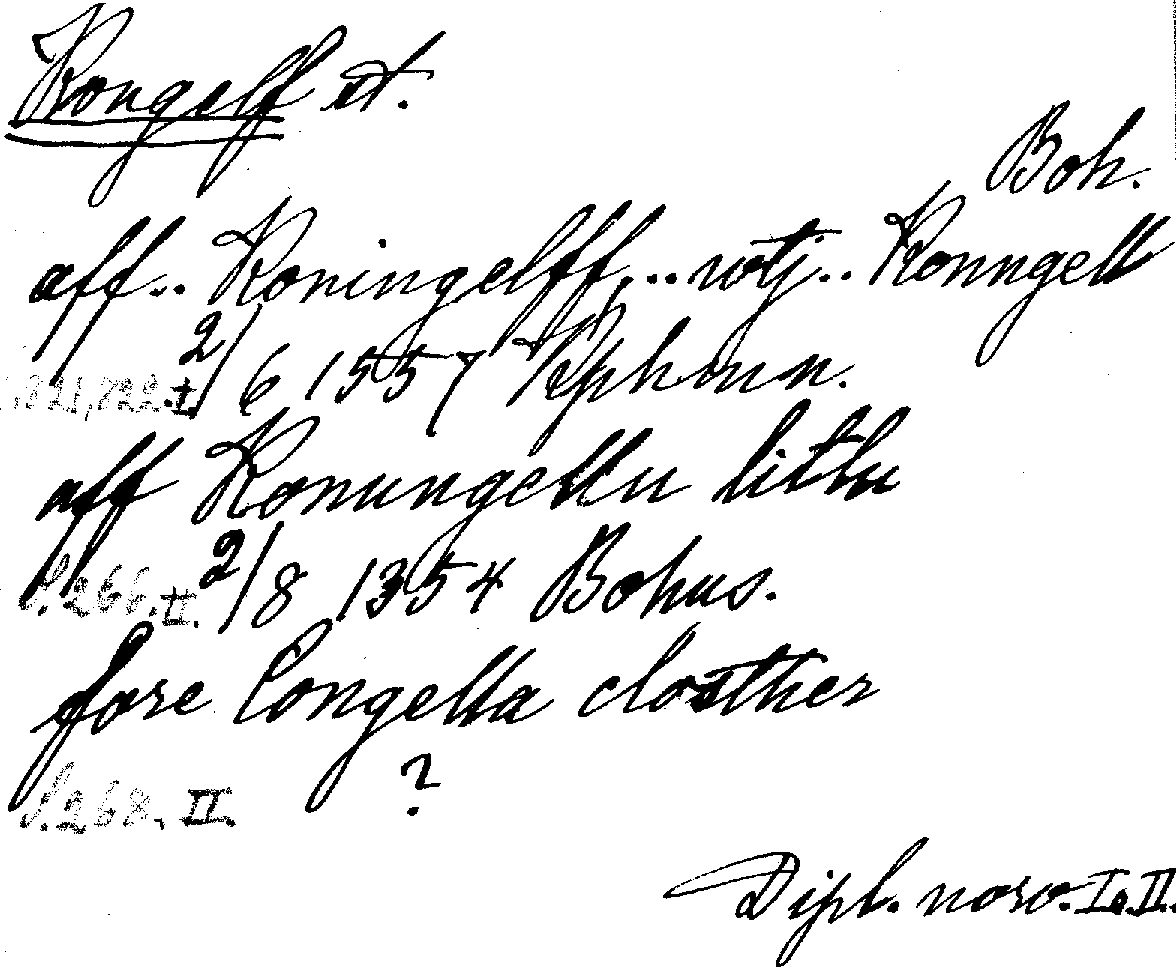 Kongelf st.
Boh.
aff.. Koningelff,.. utj.. Konngell
2/6 1557 Kphmn.
S. 821, 822. I.
aff Konungellu litlu
S. 266. II. 2/8 1354 Bohus.
fore Congella closther
S. 268. II. ?
Dipl. norv. I. II.